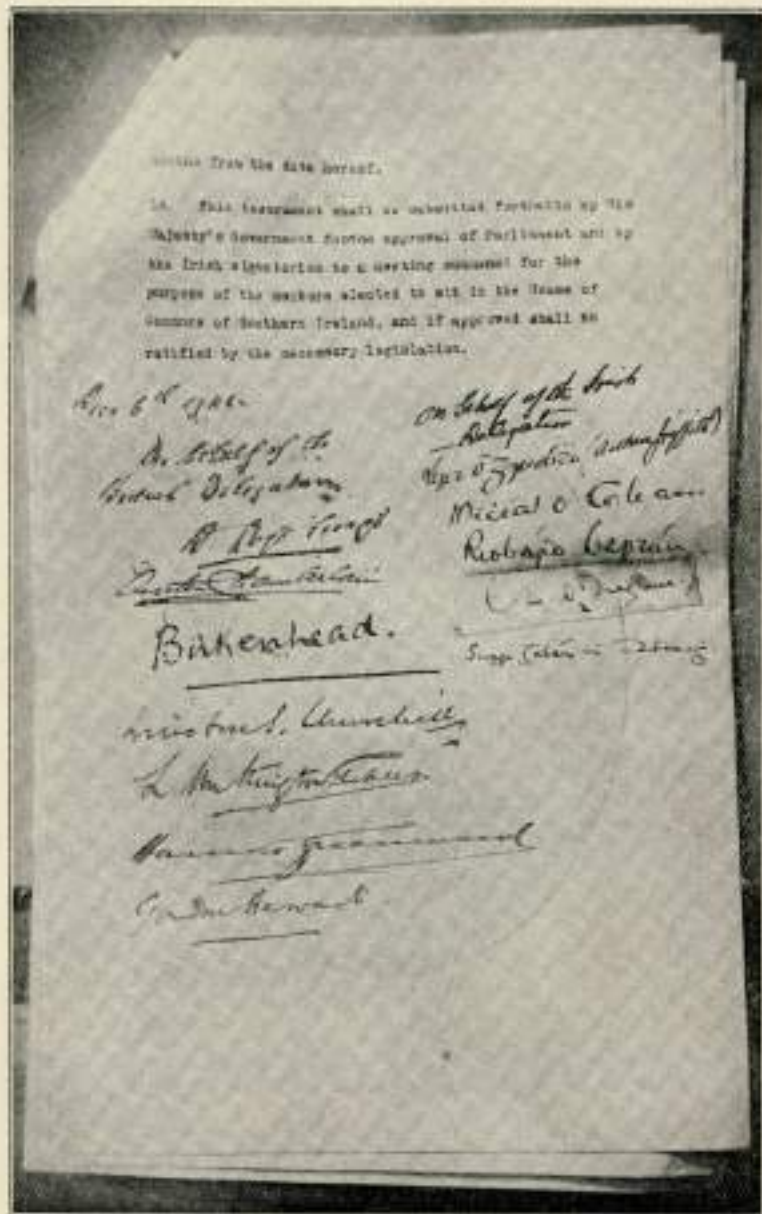 months from the date hereof.
18. This instrument shall be submitted forthwith by His
Majesty's Government for the approval of Parliament and by
the Irish signatories to a meeting summoned for the
purpose of the members elected to sit in the House of
Commons of Southern Ireland, and if approved shall be
ratified by the necessary legislation.
Dec 6th 1921.
On behalf of the
British Delegation
D Lloyd George
Austen Chamberlain
Birkenhead.
Winston S. Churchill
L Worthington Evans
Hamar Greenwood
Gordon Hewart
On behalf of the Irish
Delegation
Art Ó Gríobhtha (Arthur Griffith)
Mícheál Ó Coileain
Riobárd Bartún